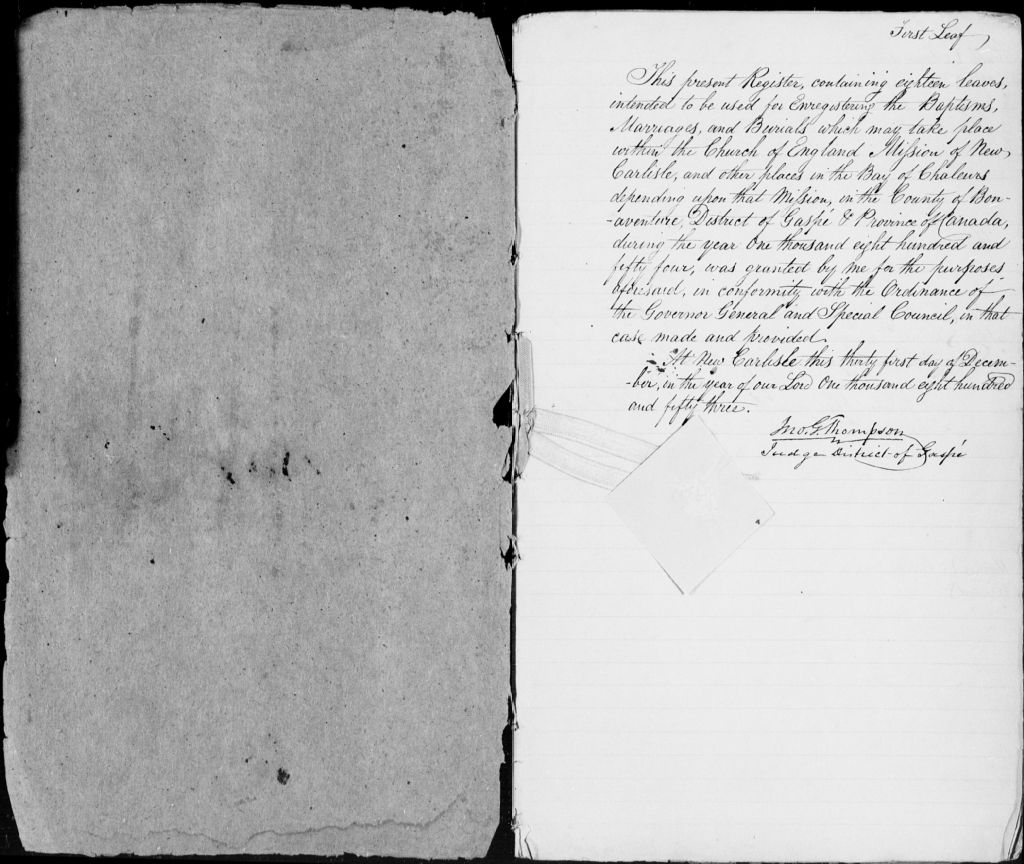 First Leaf
This present Register, containing eighteen leaves,
intended to be used for Enregistering the Baptisms,
Marriages, and Burials which may take place
within the Church of England Mission of New
Carlisle, and other places in the Bay of Chaleurs
depending upon that Mission, in the County of Bon-
-aventure, District of Gaspé & Province of Canada,
during the year One thousand eight hundred and
fifty four, was granted by me for the purposes
aforesaid, in conformity with the Ordinance of
the Governor General and Special Council, in that
case made and provided.
At New Carlisle this thirty first day of Decem-
-ber, in the year of our Lord One thousand eight hundred
and fifty three.
Jno. G. Thompson
Judge District of Gaspé